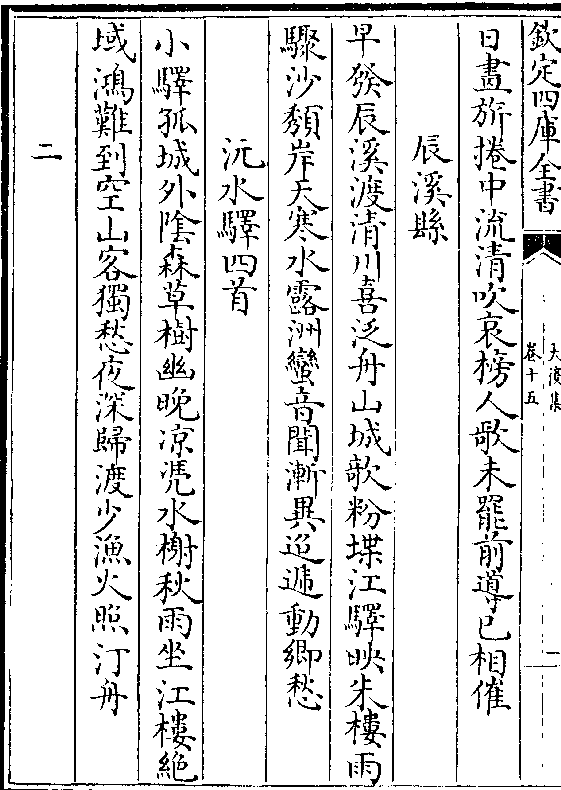 欽定四庫全書
大復集
卷十五
二
日晝旂捲中流清吹哀榜人歌未罷前導已相催
辰溪縣
早發辰溪渡清川喜泛舟山城欹粉堞江驛映朱樓雨
驟沙頽岸天寒水露洲蠻音聞漸異迢遞動鄉愁
沅水驛四首
小驛孤城外陰森草樹幽晚凉凴水榭秋雨坐江樓絶
域鴻難到空山客獨愁夜深歸渡少漁火照汀舟
二